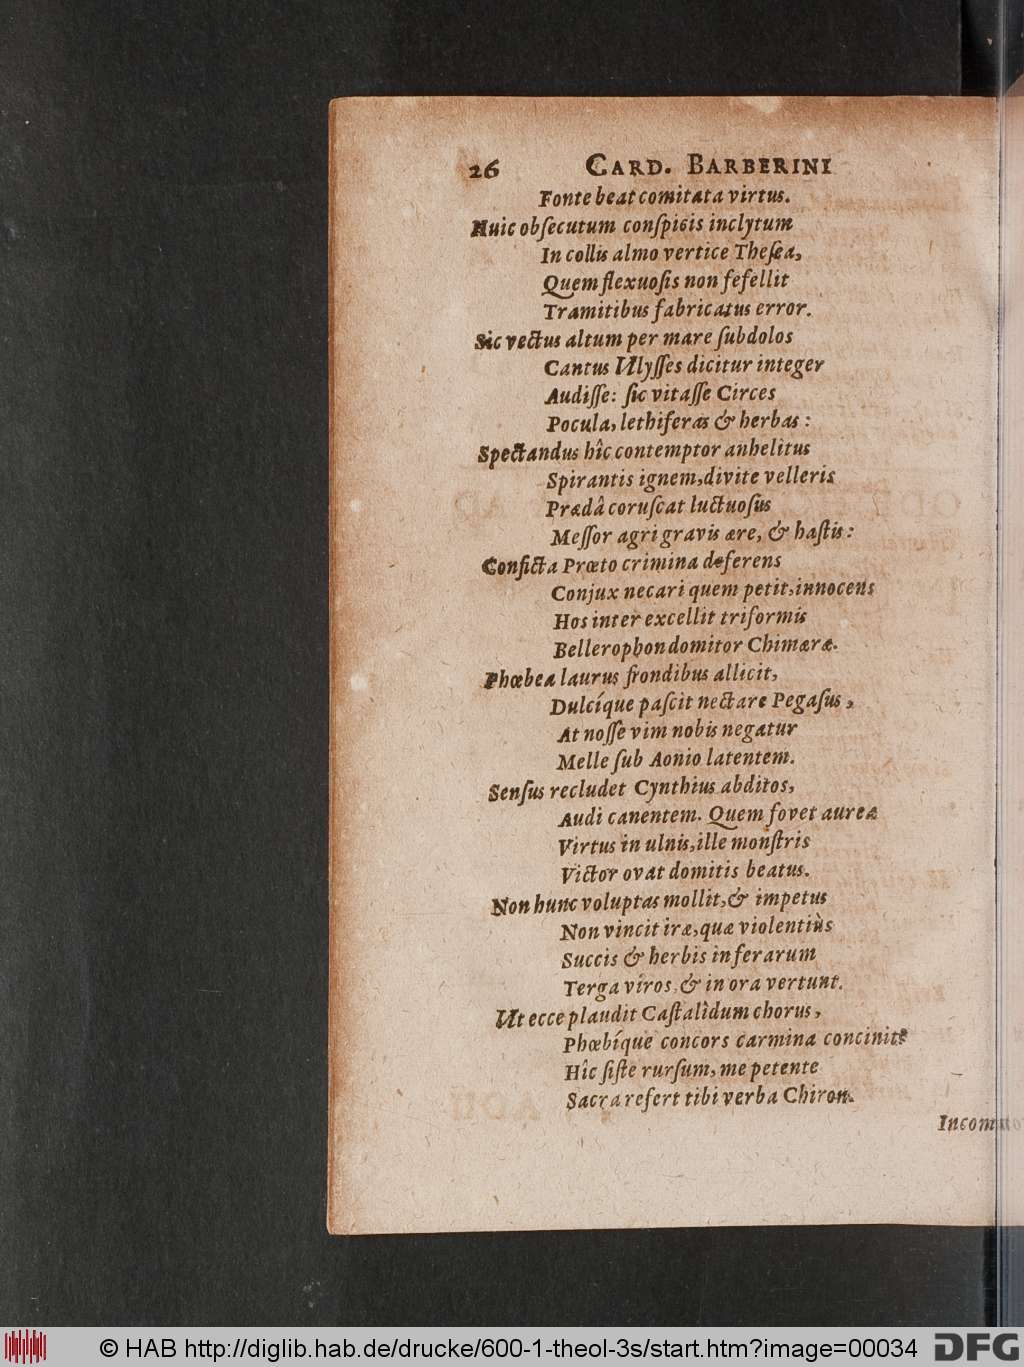 26 CARD. BARBERINI
Fonte beat comitata virtus.
Huic obſecutum conſpicis inclytum
In collis almo vertice Theſea,
Quem flexuoſis non fefellit
Tramitibus fabricatus error.
Sic vectus altum per mare ſubdolos
Cantus Ulyſſes dicitur integer
Audiſſe: ſic vitaſſe Circes
Pocula, lethiferas & herbas:
Spectandus hîc contemptor anhelitus
Spirantis ignem, divite velleris
Prædâ coruſcat luctuoſus
Meſſor agri gravis ære, & haſtis:
Conficta Prœto crimina deferens
Conjux necari quem petit, innocens
Hos inter excellit triformis
Bellerophon domitor Chimæræ.
Phœbea laurus frondibus allicit,
Dulcíque paſcit nectare Pegaſus,
At noſſe vim nobis negatur
Melle ſub Aonio latentem.
Senſus recludet Cynthius abditos,
Audi canentem. Quem fovet aurea
Virtus in ulnis, ille monſtris
Victor ovat domitis beatus.
Non hunc voluptas mollit, & impetus
Non vincit iræ, quæ violentiùs
Succis & herbis inferarum
Terga viros, & in ora vertunt.
Ut ecce plaudit Caſtalidum chorus,
Phœbíque concors carmina concinit:
Hîc ſiſte rurſum, me petente
Sacra refert tibi verba Chiron.
© HAB http://diglib.hab.de/drucke/600-1-theol-3s/start.htm?image=00034
DFG